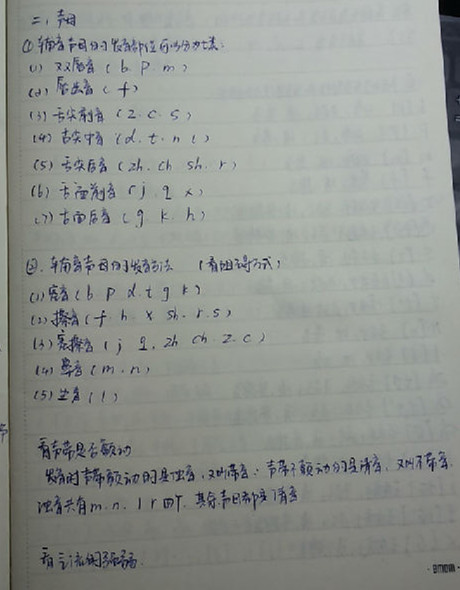 二、声母
①辅音声母的发音部位可以分为七类:
(1) 双唇音 (b. p. m)
(2) 唇齿音 (f)
(3) 舌尖前音 (z. c. s)
(4) 舌尖中音 (d. t. n l)
(5) 舌尖后音 (zh. ch sh. r)
(6) 舌面前音 (j. q x)
(7) 舌面后音 (g k. h)
辅音声母的发音方法 (看阻碍方式)
(1) 塞音 (b p d. t g k)
(2) 擦音 (f h. x sh. r. s)
(3) 塞擦音 (j q. zh ch z. c)
(4) 鼻音 (m. n)
(5) 边音 (l)
看声带是否颤动
发音时声带颤动的是浊音,又叫带音;声带不颤动的是清音,又叫不带音.
浊音只有m. n. l r 四个,其余声母都是清音
看气流的强弱